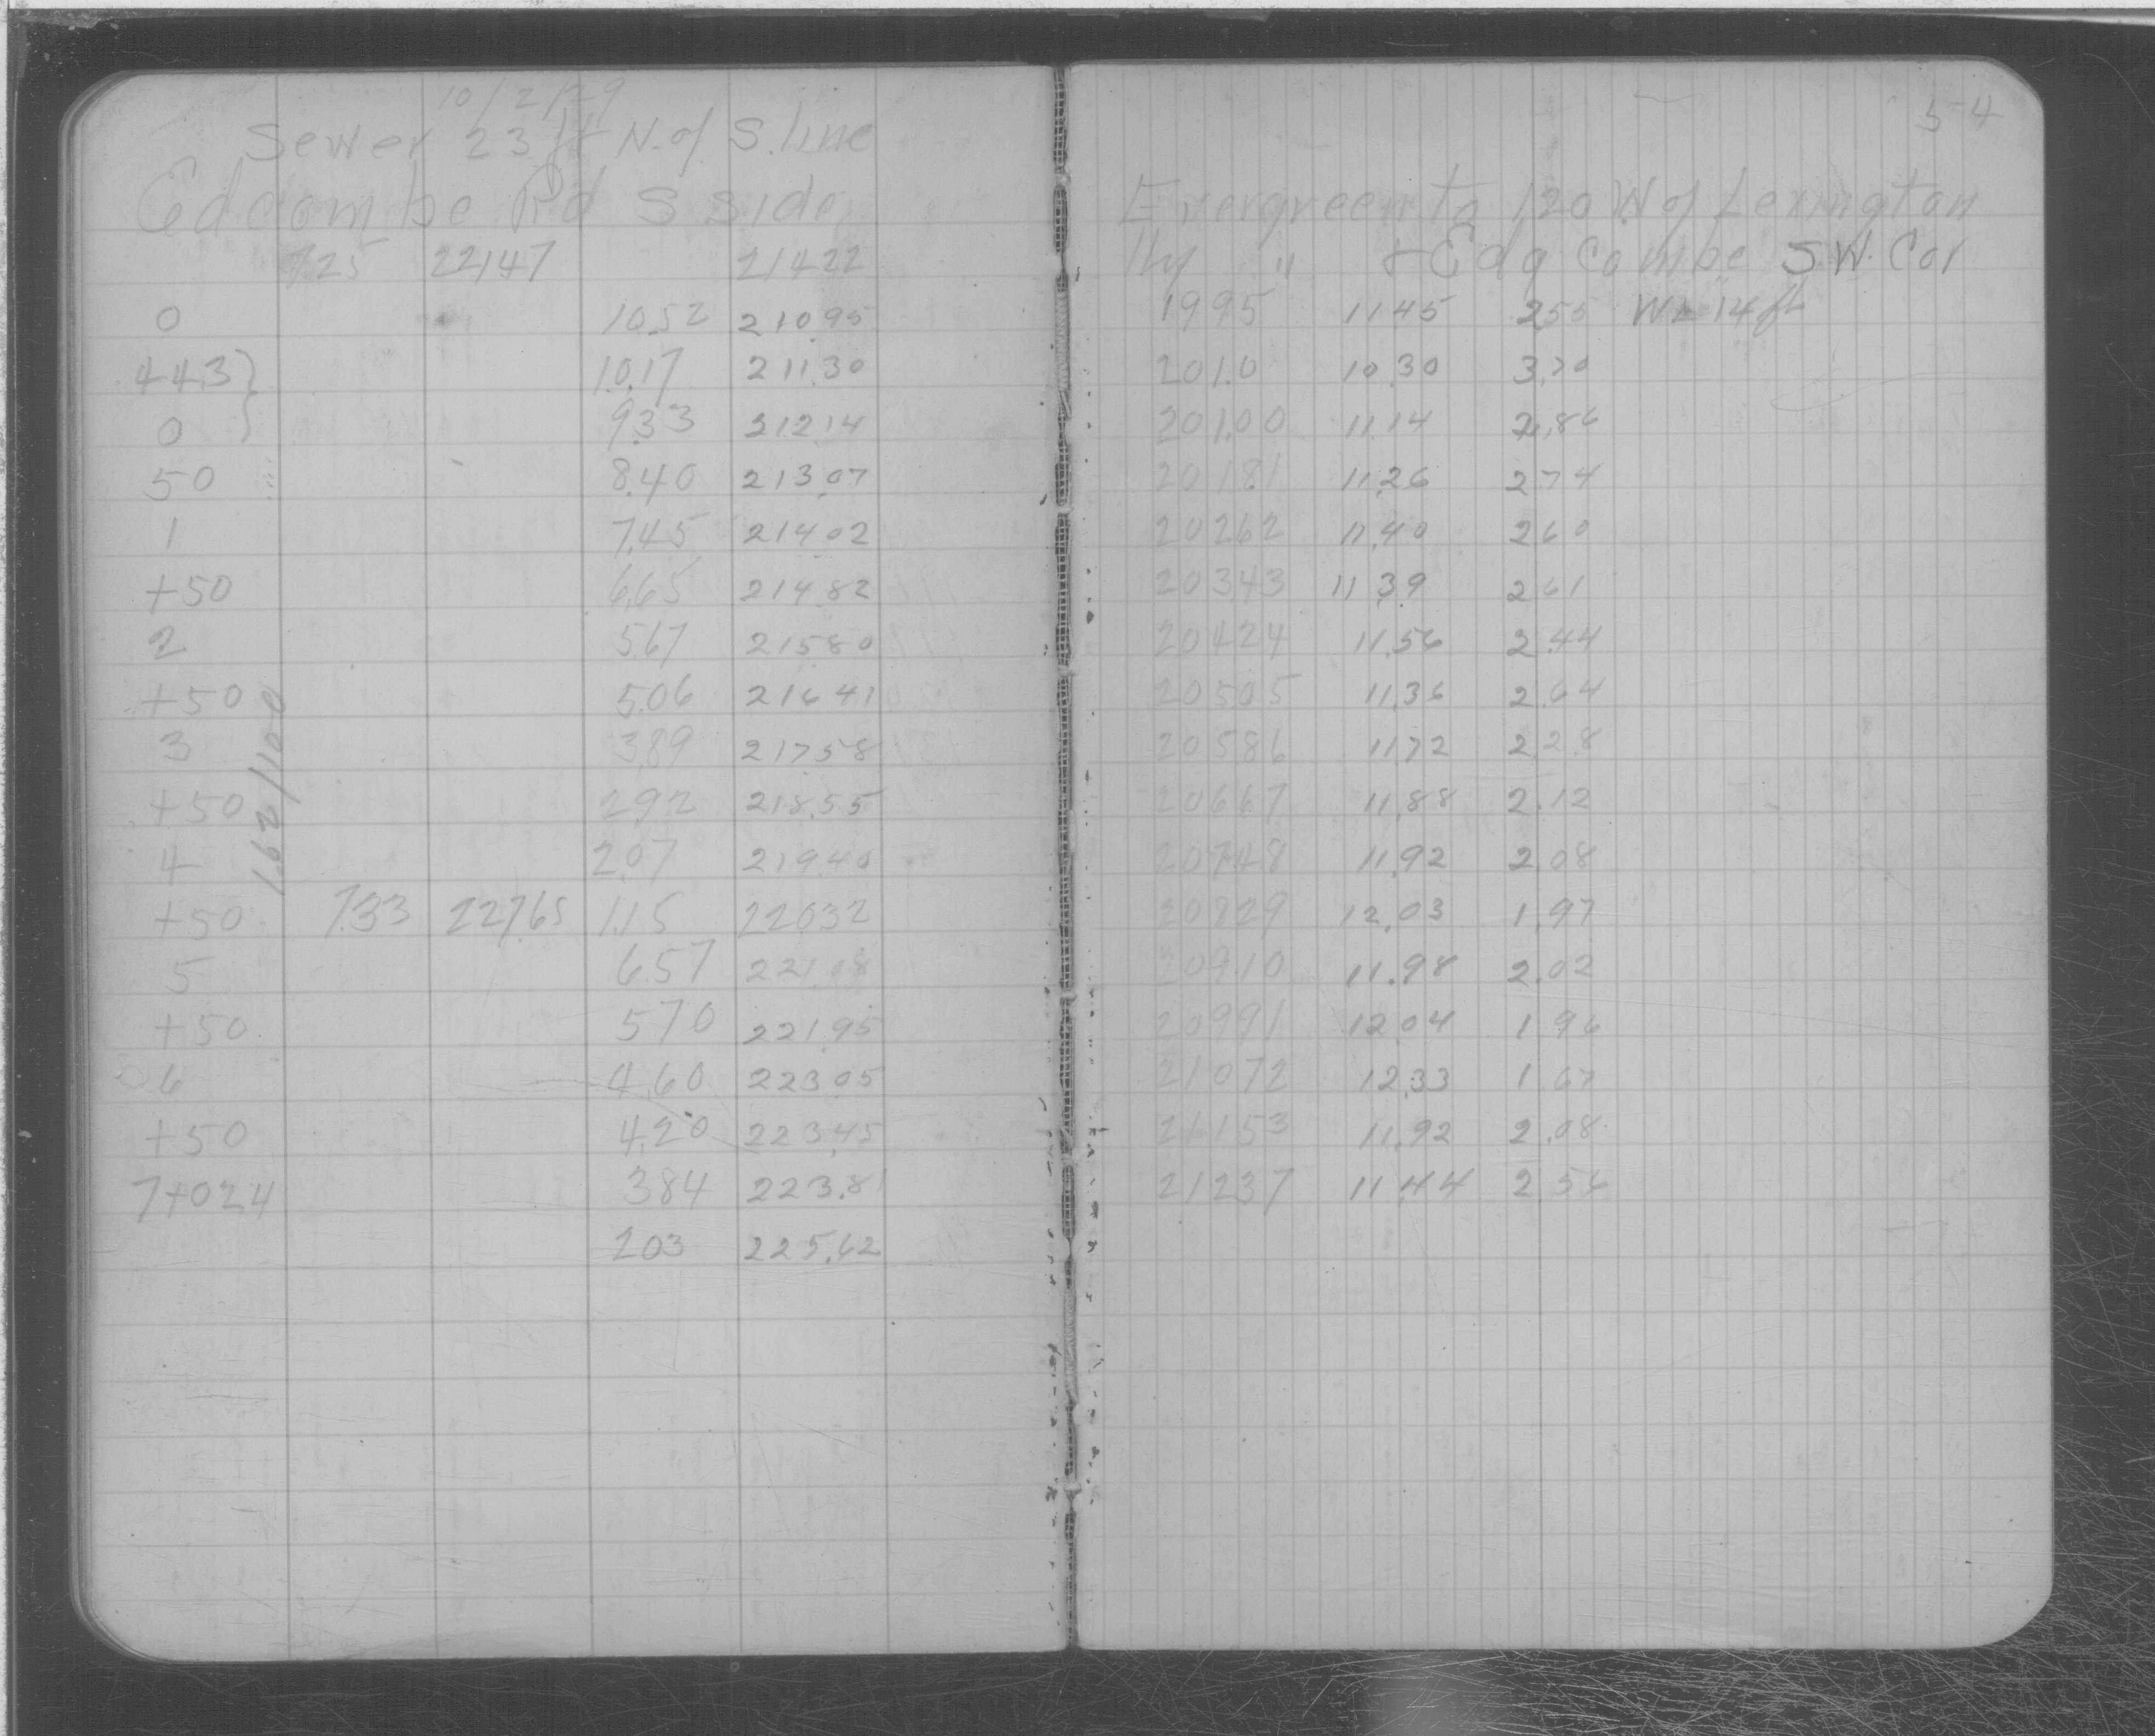 10/2/29
Sewer 23 ft N. of S. line
Edcombe Rd S side
7.25 221.47 214.22
0 10.52 210.95
443 } 10.17 211.30
0 9.33 212.14
50 8.40 213.07
1 7.45 214.02
+50 6.65 214.82
2 5.67 215.80
+50 5.06 216.41
3 3.89 217.58
+50 2.92 218.55
4 2.07 219.40
+50 7.33 227.65 1.15 220.32
5 6.57 221.08
+50 5.70 221.95
6 4.60 223.05
+50 4.20 223.45
7+024 3.84 223.81
2.03 225.62
1.62/100
54
Evergreen to 120 W of Lexington
Hy " + Edgcombe SW. Cor
199.5 11.45 2.55 W 14 ft
201.0 10.30 3.70
201.00 11.14 2.86
201.81 11.26 2.74
202.62 11.40 2.60
203.43 11.39 2.61
204.24 11.56 2.44
205.05 11.36 2.64
205.86 11.72 2.28
206.67 11.88 2.12
207.48 11.92 2.08
208.29 12.03 1.97
209.10 11.98 2.02
209.91 12.04 1.96
210.72 12.33 1.67
211.53 11.92 2.08
212.37 11.44 2.56